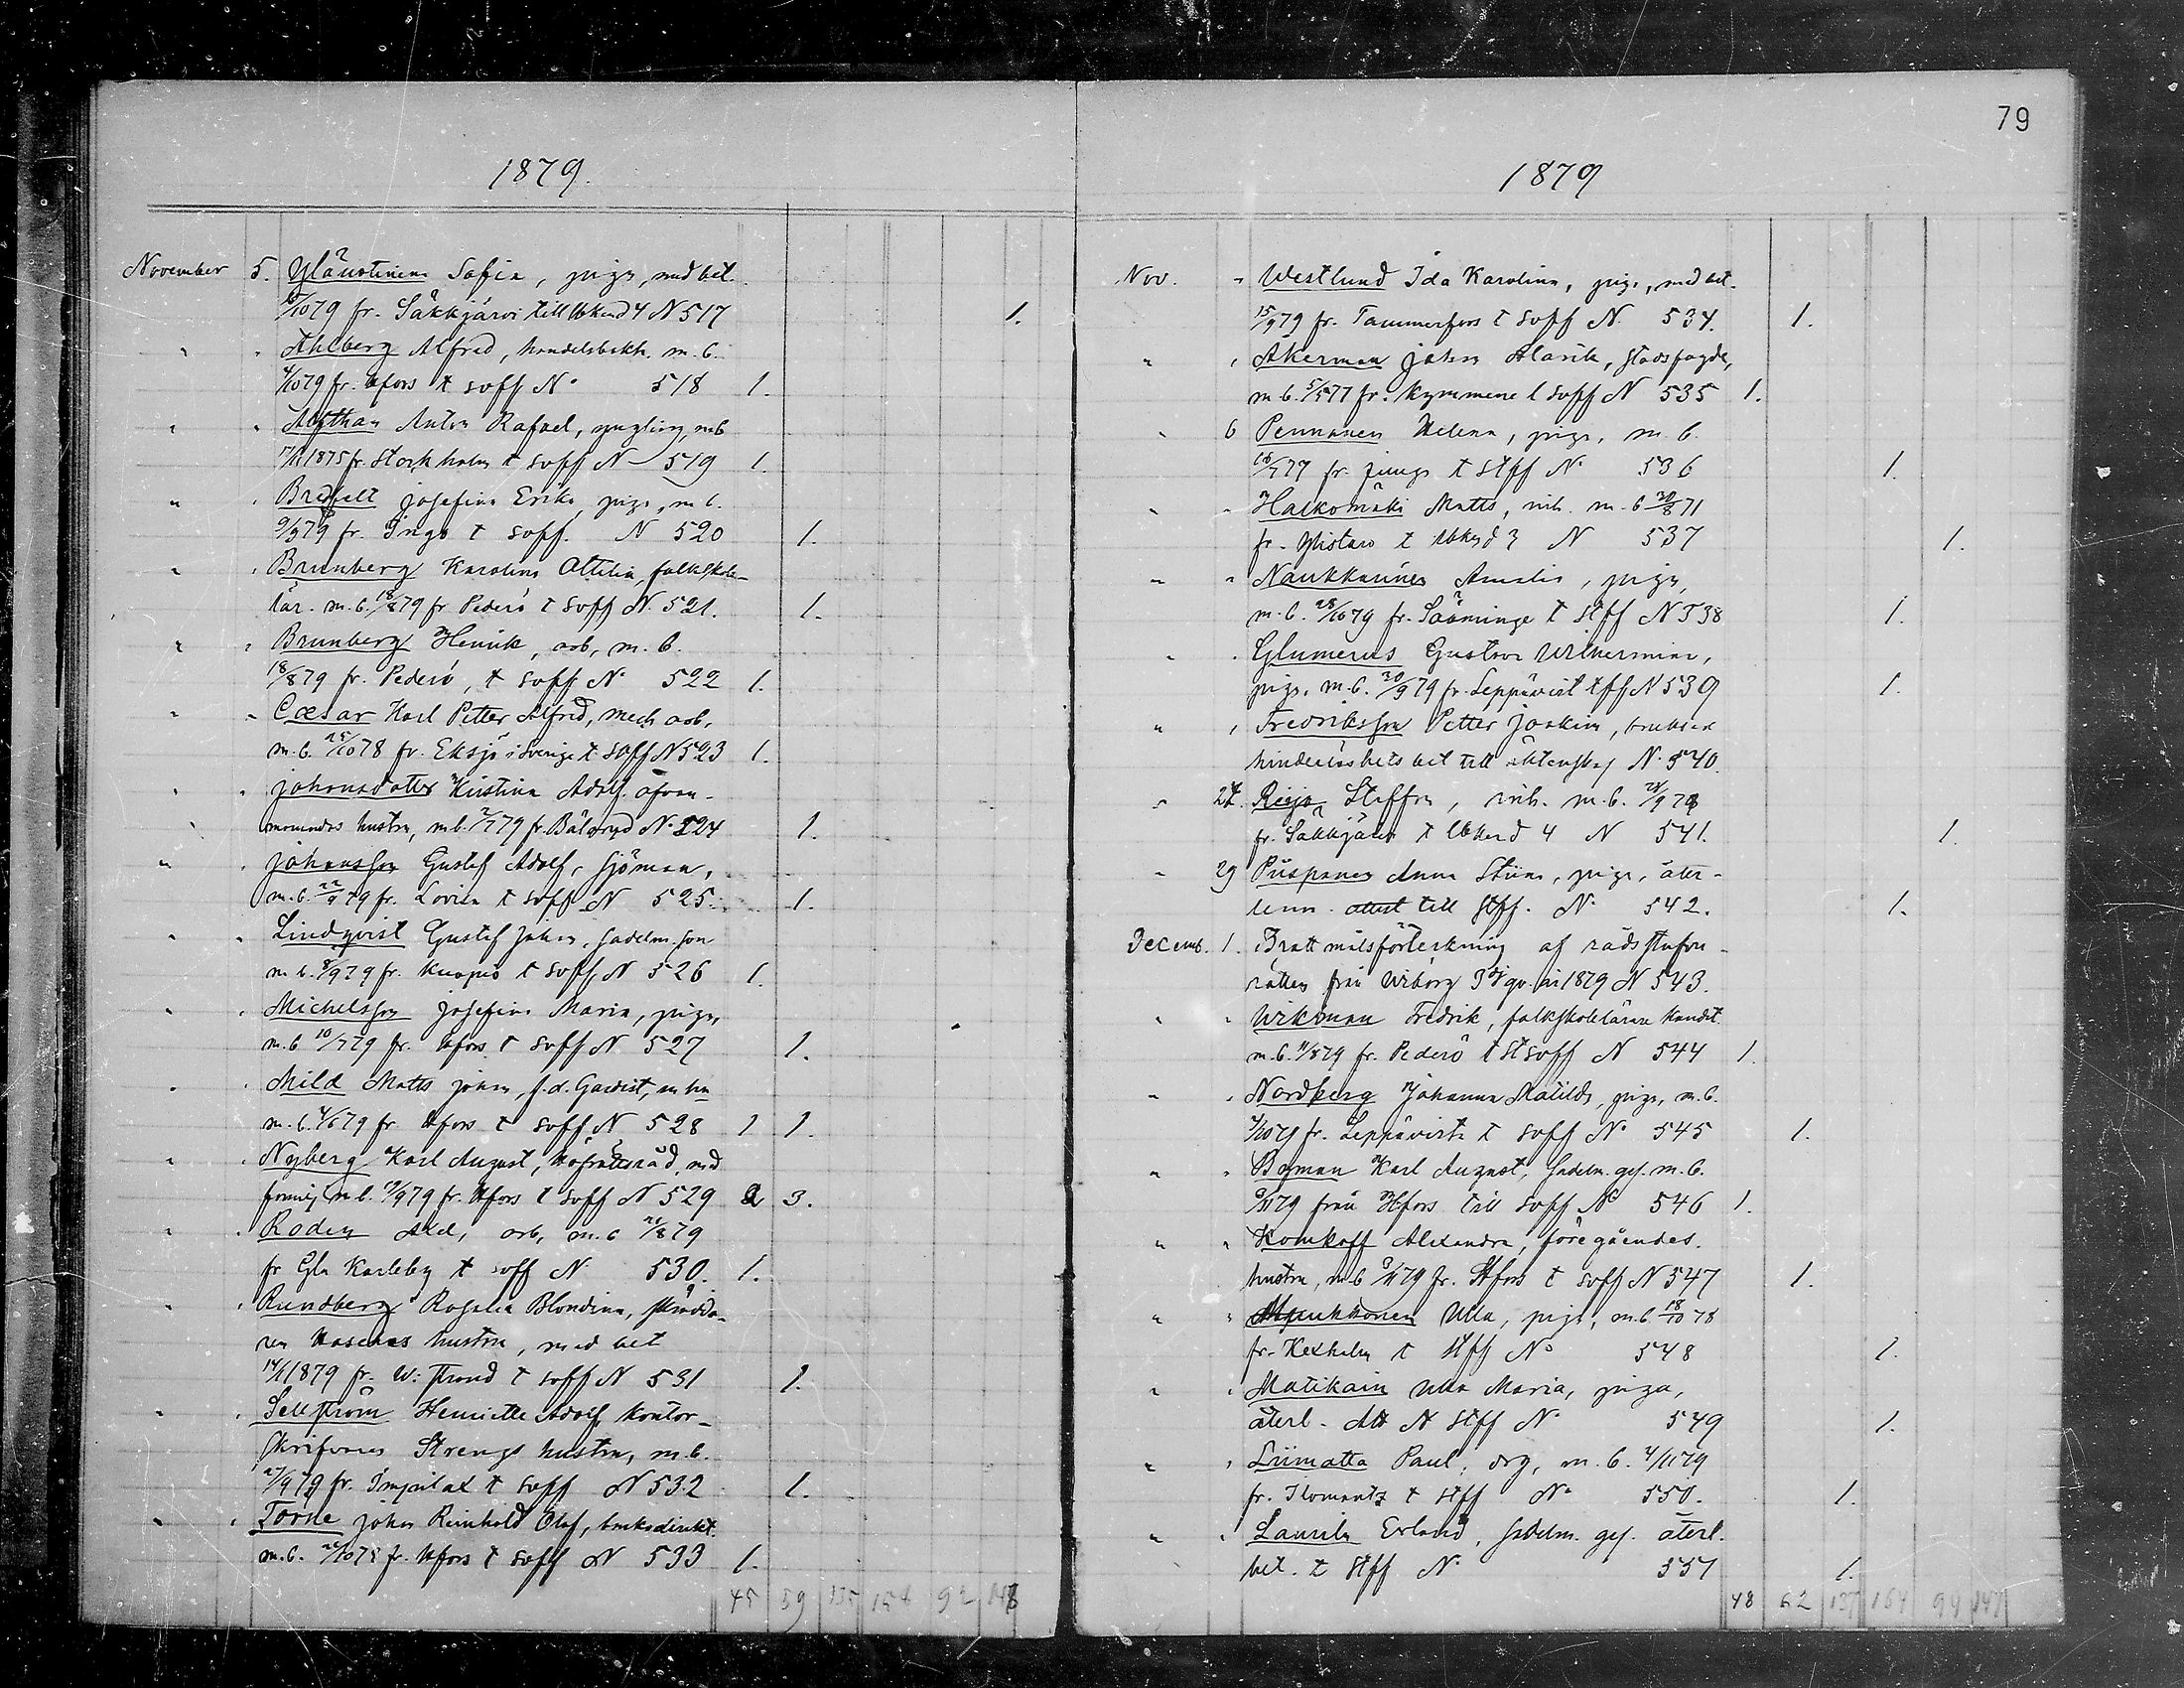 79
1879.
November 5. Yläuotinen Sofia, piga, med bet.
6/10 79 fr. Säkkjärvi till Wbkend 4 N 517 1.
" " Ahlberg Alfred, handelsbokh. m. b.
4/10 79 fr. Hfors t soff No 518 1.
" " Alfthan Anton Rafael, yngling, m b
1875 fr. Stockholm t soff N 519 1.
" " Bredfelt Josefina Erika piga, m b.
9/9 79 fr. Ingo t soff. N 520 1.
" " Brunberg Karolina Ottilia, folkskole-
lär. m. b. 18/8 79 fr Pederö t soff N. 521. 1.
" " Brunberg Henrik, arb, m. b.
18/8 79 fr. Pederö, t soff No 522 1.
" " Cæsar Karl Petter Alfred, mech arb,
m. b. 25/10 78 fr. Eksjö i Sverige t. soff N 523 1.
" " Johansdotter Kristina Adolf. ofvan-
nämndes hustru, m b. 7/7 79 fr. Bälaryd No 524 1.
" " Johansson Gustaf Adolf, Sjöman,
m. b. 22/9 79 fr. Lovisa t soff N 525. 1.
" " Lindqvist Gustaf Johan, Sadelm. son
m b. 8/9 79 fr. Kuopio t soff N 526 1.
" " Michelsson Josefina Maria, piga,
m. b 10/7 79 fr. Hfors t soff N 527 1.
" " Mild Matts Johan, f. d. Gardist, m hu
m. b. 4/6 79 fr Hfors t soff N 528 1 1.
" " Nyberg Karl August, Hofrättsråd, med
familj m b. 9/9 79 fr. Hfors t soff N 529 2 3.
" " Roden Axel, arb, m. b 21/8 79
fr Gla Karleby t soff N 530. 1.
" " Rundberg Rosalia Blondina, skrädda-
ren hustru, med bet
14/11 1879 fr. W: strand t soff N 531 1.
" " Sellström Henriette Adolf Kontor-
skrifvares Strengs hustru, m. b.
27/9 79 fr. Impilax t soff N 532 1.
" " Törne Johan Reinhold Olof, bruksdirekt.
m. b. 22/10 78 fr. Hfors t soff N 533 1.
45 59 135 154 92 146
1879
Nov. " Westlund Ida Karolina, piga, med bet.
15/9 79 fr. Tammerfors t soff N. 534. 1.
" " Åkerman Johan Alarik, stadsfogde,
m b. 5/5 77 fr. Kymmene t soff N 535 1.
" 6 Pennanen Helena, piga, m. b.
18/7 77 fr. Junga t stff No 536 1.
" " Halkomäki Matts, inh. m. b 30/8 71
fr. Ylistaro t Wbkend 3 N 537 1.
" " Naukkarinen Amalia, piga,
m. b. 28/10 79 fr. Sääminge t stff N 538 1.
" " Glumerus Gustava Wilhermina,
piga, m. b. 30/9 79 fr. Leppävirt t stff N 539 1.
" " Fredriksson Petter Joakim,
hinderlöshets bet till äktenskap No 540.
" 24. Reijo Steffan, inh. m. b. 28/9 79
fr. Säkkjärvi t Wbkend 4 N 541. 1.
" 29 Puspanen Anna Stiina, piga, åter-
lemn. attest till stff. No 542. 1.
Decemb. 1. Brottmålsförteckning af rådstufvu-
rätten från Wiborg 3dje qv. år 1879 N 543.
" " Wikman Fredrik, folkskolelärare kandit.
m. b. 11/8 79 fr. Pederö t st soff N 544 1.
" " Nordberg Johanna Matilda, piga, m. b.
4/10 79 fr. Leppävirta t soff No 545 1.
" " Byman Karl August, Sadelm. ges. m. b.
9/11 79 från Hfors till soff No 546 1.
" " Komkoff Alexandra, föregåendes.
hustru, m b 9/11 79 fr. Hfors t soff N 547 1.
" " Myukkönen Ulla, piga, m. b. 18/10 78
fr. Kexholm t stff No 548 1.
" " Matikain Ulla Maria, piga,
återl. Att N stff No 549 1.
" " Liimatta Paul, drg, m. b. 4/11 79
fr. Ilomantz t stff No 550. 1.
" " Laurila Erland, Sadelm. ges. återl.
bet. t stff No 551 1.
48 62 137 164 94 147